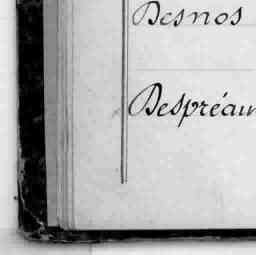 Desnos
Despréaux